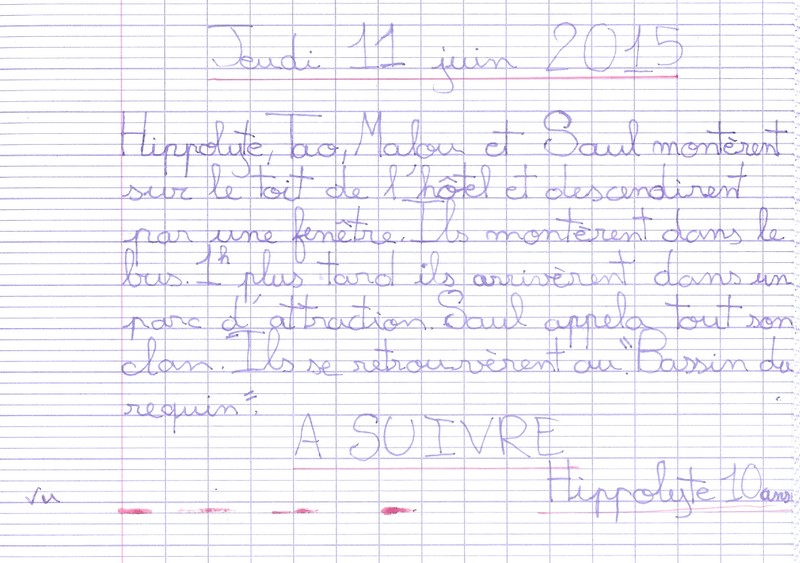 Jeudi 11 juin 2015
Hippolyte, Tao, Malou et Saul montèrent
sur le toit de l'hôtel et descendirent
par une fenêtre. Ils montèrent dans le
bus. 1h plus tard ils arrivèrent dans un
parc d'attraction. Saul appela tout son
clan. Ils se retrouvèrent au "Bassin du
requin".
A SUIVRE
Hippolyte 10 ans
vu